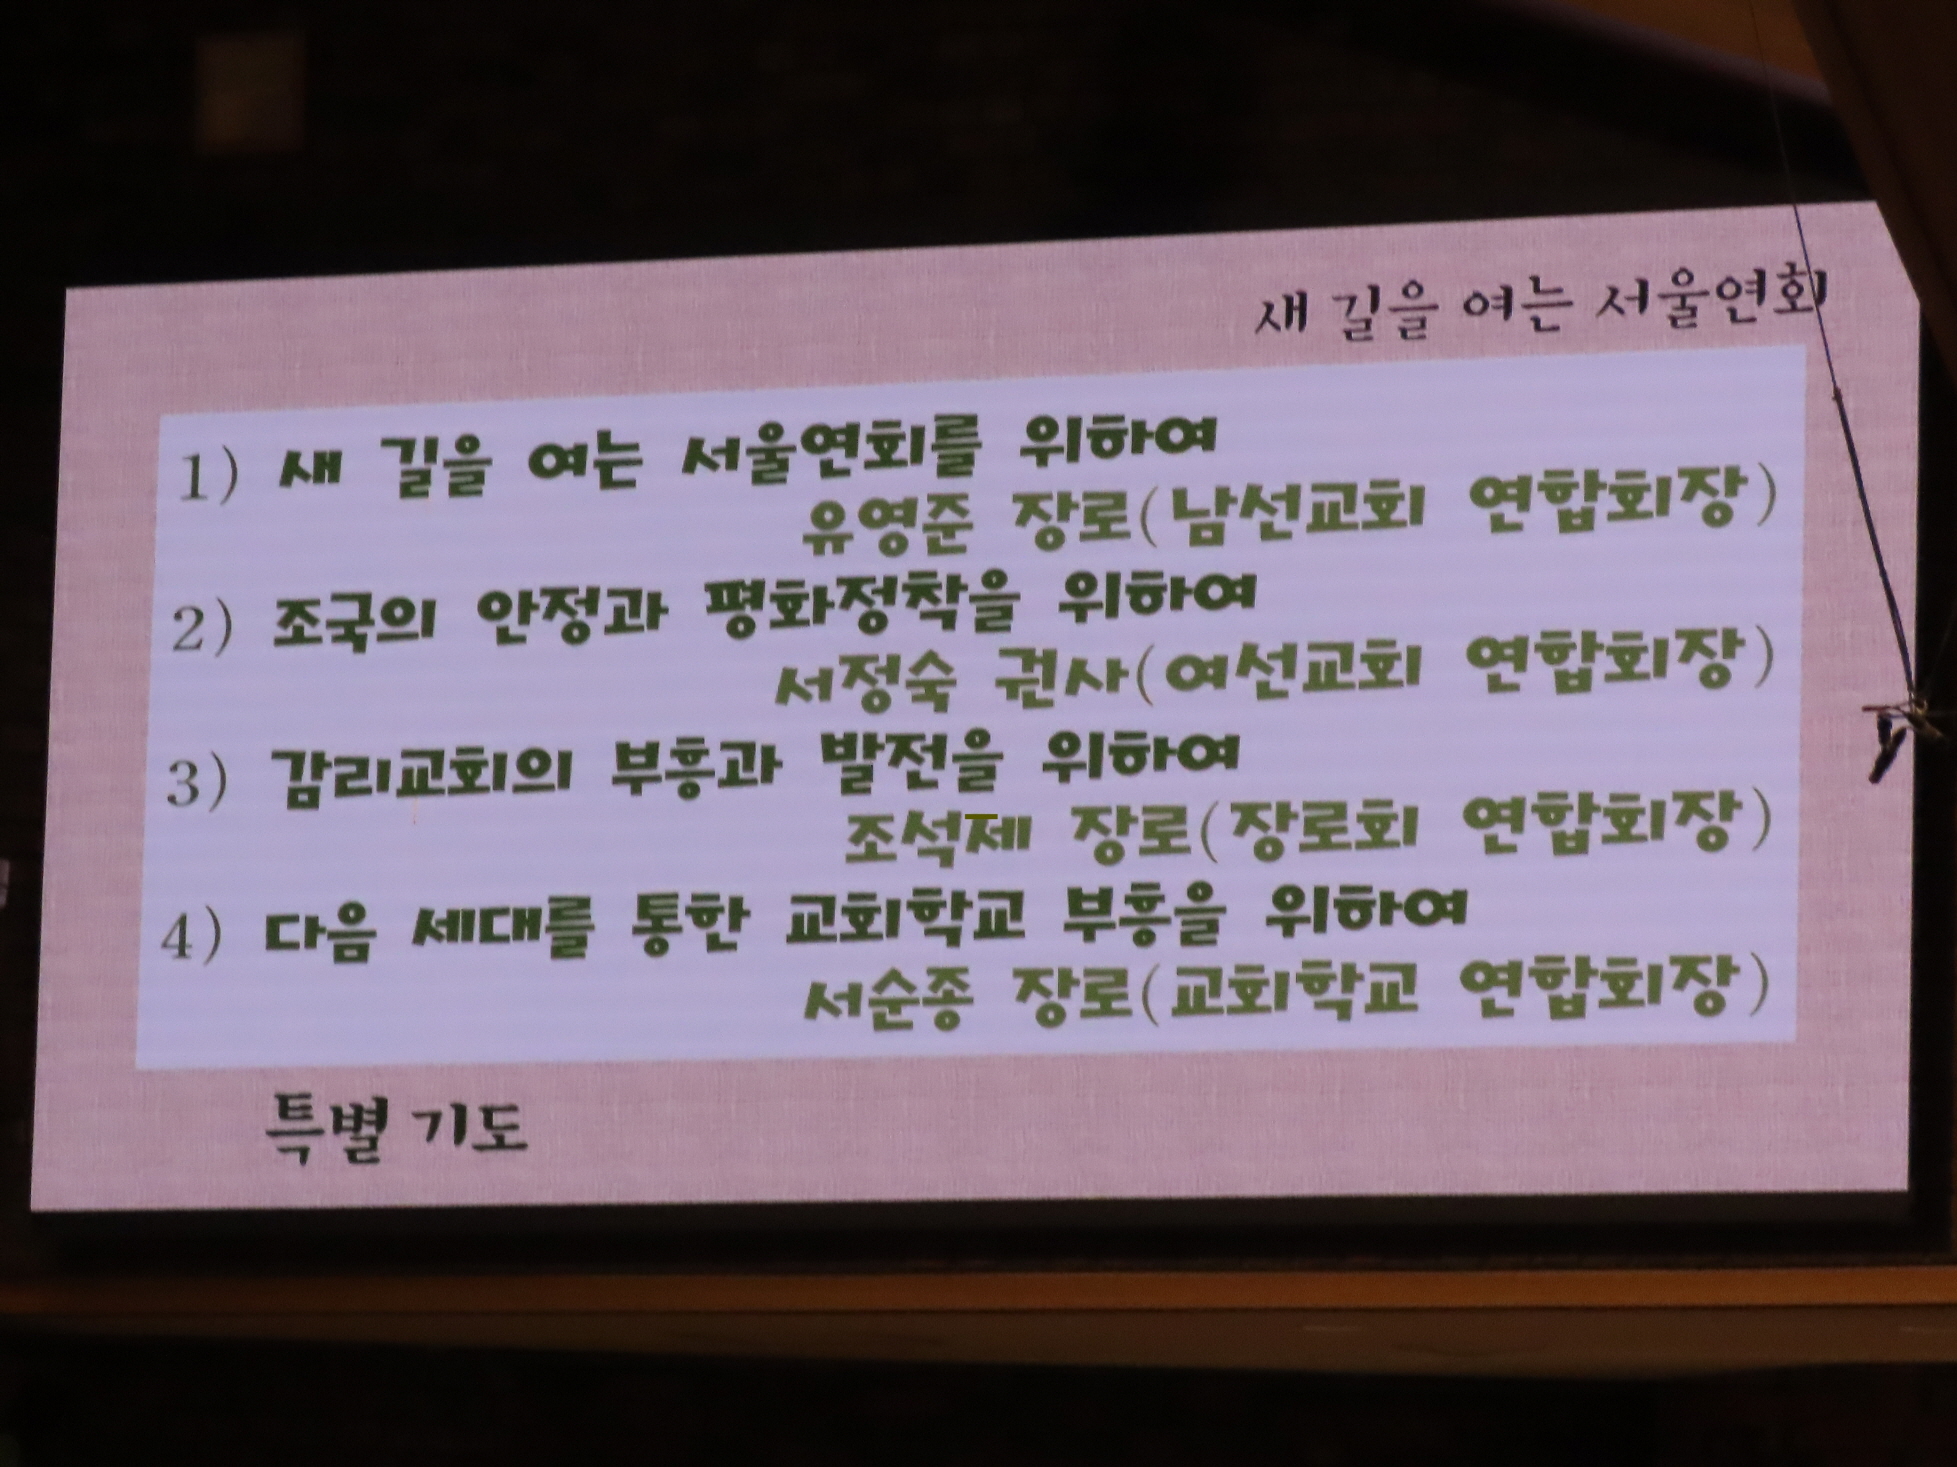 새 길을 여는 서울연회
1) 새 길을 여는 서울연회를 위하여
유영준 장로(남선교회 연합회장)
2) 조국의 안정과 평화정착을 위하여
서정숙 권사(여선교회 연합회장)
3) 감리교회의 부흥과 발전을 위하여
조석제 장로(장로회 연합회장)
4) 다음 세대를 통한 교회학교 부흥을 위하여
서순종 장로(교회학교 연합회장)
특별 기도